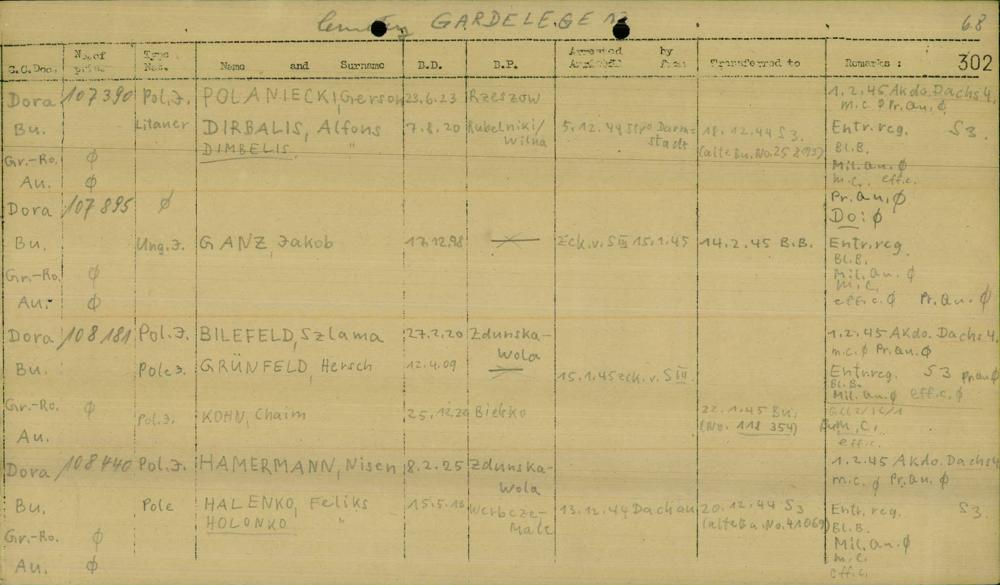 Cemetery GARDELEGEN
68
C.C.Doc. No.of Nat. Name and Surname B.D. B.P. Arrested by from Transferred to Remarks : 302
Dora 107390 Pol.J. POLANIECKI, Gerson 23.6.23 Rzeszow 1.2.45 Akdo. Dachs 4,
m.c. Ø Pr.an. Ø
Bu. Litauer DIRBALIS, Alfons 7.8.20 Rubelniki/ 5.12.44 Stpo Darm= 18.12.44 S3. Entr.reg. S3.
DIMBELIS " Wilna stadt (alte Bu.No. Bl.B.
Gr.-Ro. Ø Mil.an. Ø
Au. Ø m.c. eff.c.
Pr.an. Ø
Dora 107895 Ø Do: Ø
Bu. Ung.J. GANZ, Jakob 17.12.98 zck.v.SIII 15.1.45 14.2.45 B.B. Entr.reg.
Bl.B.
Gr.-Ro. Ø Mil.an. Ø
m.c.
Au. Ø eff.c. Ø Pr.an. Ø
Dora 108181 Pol.J. BILEFELD, Szlama 27.2.20 Zdunska- 1.2.45 AKdo. Dachs 4.
Wola m.c. Ø Pr.an. Ø
Bu. Pole J. GRÜNFELD, Hersch 12.4.09 15.1.45 zck.v.SIII. Entr.reg. S3 Pr.an. Ø
Bl.B.
Mil.an. Ø eff.c. Ø
Gr.-Ro. Ø Pol.J. KOHN, Chaim 25.12.20 Bielsko 22.1.45 Bu.
(No. 118 354) m.c.
Au. eff.c.
Dora 108440 Pol.J. HAMERMANN, Nisen 8.2.25 Zdunska- 1.2.45 AKdo. Dachs 4
Wola m.c. Ø Pr.an. Ø
Bu. Pole HALENKO, Feliks 15.5.13 Werbcze- 13.12.44 Dachau 20.12.44 S3 Entr.reg. S3
HOLONKO " Male (alte Bu.No.41069) Bl.B.
Gr.-Ro. Ø Mil.an. Ø
m.c.
Au. Ø eff.c.